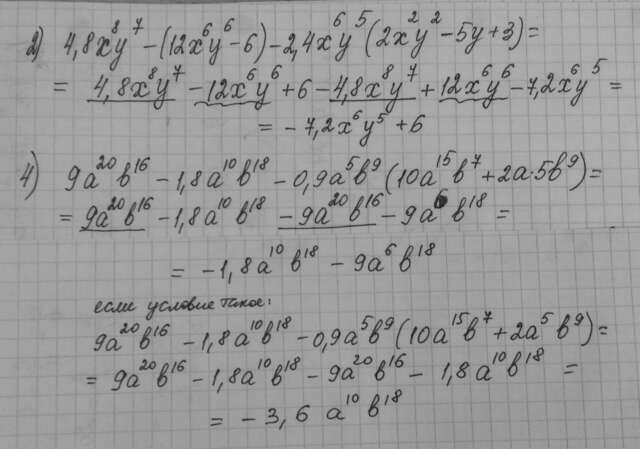 2) 4,8x⁸y⁷ - (12x⁶y⁶ - 6) - 2,4x⁶y⁵ (2x²y² - 5y + 3) =
= 4,8x⁸y⁷ - 12x⁶y⁶ + 6 - 4,8x⁸y⁷ + 12x⁶y⁶ - 7,2x⁶y⁵ =
= - 7,2x⁶y⁵ + 6
4) 9a²⁰b¹⁶ - 1,8a¹⁰b¹⁸ - 0,9a⁵b⁹ (10a¹⁵b⁷ + 2a·5b⁹) =
= 9a²⁰b¹⁶ - 1,8a¹⁰b¹⁸ - 9a²⁰b¹⁶ - 9a⁶b¹⁸ =
= - 1,8a¹⁰b¹⁸ - 9a⁶b¹⁸
если условие такое:
9a²⁰b¹⁶ - 1,8a¹⁰b¹⁸ - 0,9a⁵b⁹ (10a¹⁵b⁷ + 2a⁵b⁹) =
= 9a²⁰b¹⁶ - 1,8a¹⁰b¹⁸ - 9a²⁰b¹⁶ - 1,8a¹⁰b¹⁸ =
= - 3,6 a¹⁰b¹⁸